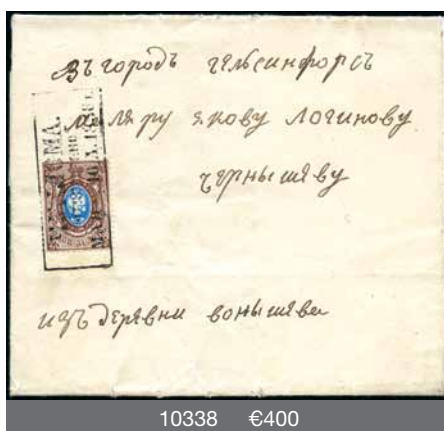 въ городъ гельсинфорсъ
маляру якову логинову
чернышеву
изъ деревни вонышева
10338 €400